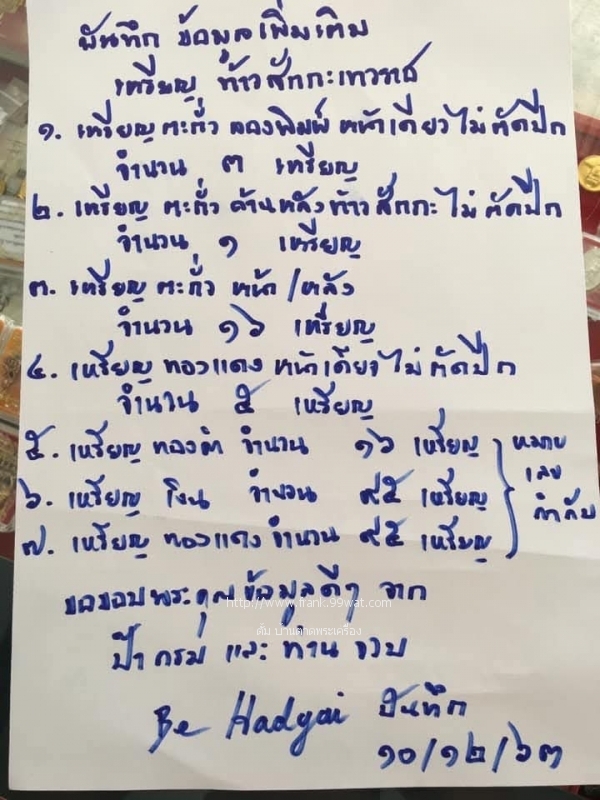 บันทึก ข้อมูลเพิ่มเติม
เหรียญ ท้าวสักกะเทวราช
๑. เหรียญตะกั่ว ลองพิมพ์ หน้าเดียวไม่ตัดปีก
จำนวน ๓ เหรียญ
๒. เหรียญ ตะกั่ว ด้านหลังท้าวสักกะไม่ตัดปีก
จำนวน ๑ เหรียญ
๓. เหรียญตะกั่ว หน้า/หลัง
จำนวน ๑๖ เหรียญ
๔. เหรียญ ทองแดง หน้าเดียวไม่ตัดปีก
จำนวน ๕ เหรียญ
๕. เหรียญ ทองคำ จำนวน ๑๖ เหรียญ
๖. เหรียญ เงิน จำนวน ๙๕ เหรียญ
๗. เหรียญ ทองแดง จำนวน ๙๕ เหรียญ
หมาย
เลข
กำกับ
ขอขอบพระคุณข้อมูลดีๆ จาก
http://www.frank.99wat.com
ตั้ม บ้านค่าย​พระเครื่อง
ป๋า กรม และ ท่าน จวบ
Be Hadyai บันทึก
๑๐/๑๒/๖๓